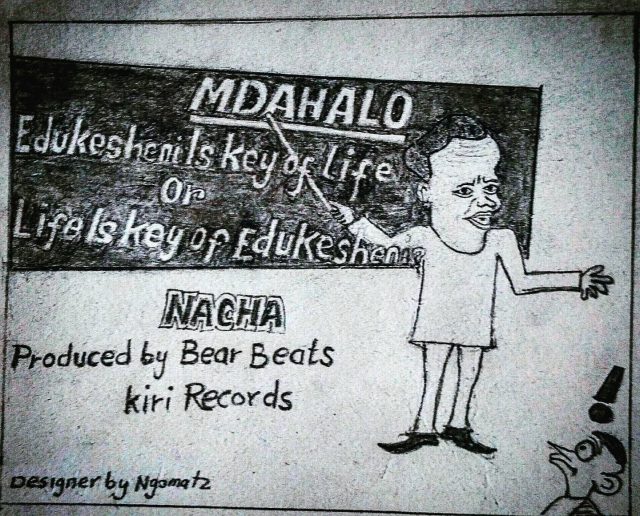 MDAHALO
Edukesheni Is key of Life
Or
Life Is key of Edukesheni?
NACHA
Produced by Bear Beats
kiri Records
Designer by Ngomatz
!